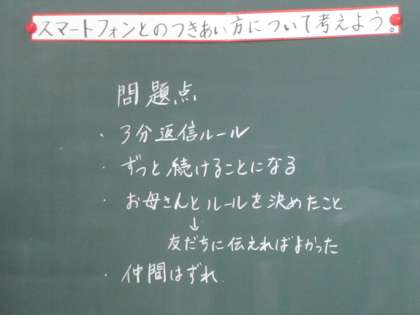 スマートフォンとのつきあい方について考えよう。
問題点
・3分返信ルール
・ずっと続けることになる
・お母さんとルールを決めたこと
↓
友だちに伝えればよかった
・仲間はずれ